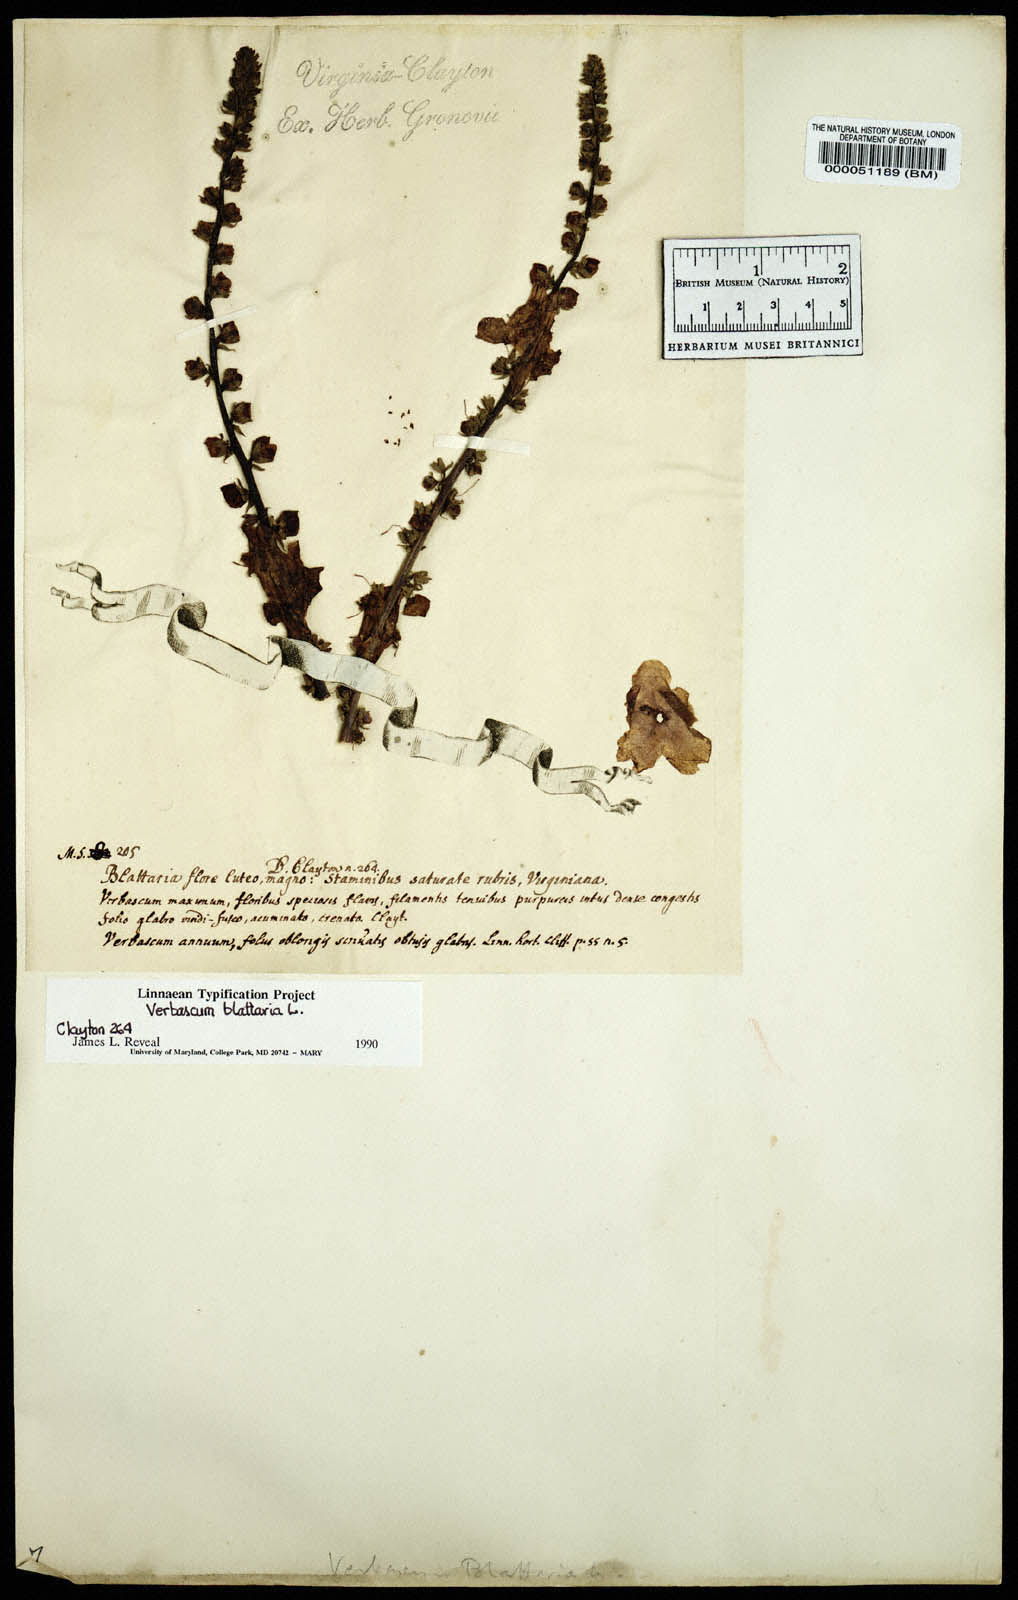 Virginia-Clayton
Ex. Herb. Gronovii
THE NATURAL HISTORY MUSEUM, LONDON
DEPARTMENT OF BOTANY
000051189 (BM)
1 2
BRITISH MUSEUM (NATURAL HISTORY)
1 2 3 4 5
HERBARIUM MUSEI BRITANNICI
M.S. 205
D. Clayton n. 264.
Blattaria flore luteo, magno: Staminibus saturate rubris, Virginiana.
Verbascum maximum, floribus speciosis flavis, filamentis tenuibus purpureis intus dense congestis
folio glabro viridi-fusco, acuminato, crenato. Clayt.
Verbascum annuum, foliis oblongis sinuatis obtusis glabris. Linn. hort. Cliff. p. 55 n. 5.
Linnaean Typification Project
Verbascum blattaria L.
Clayton 264
James L. Reveal 1990
University of Maryland, College Park, MD 20742 – MARY
7
Verbascum Blattaria L.